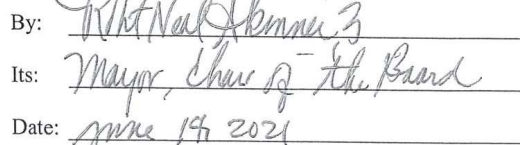 By: Neal Skinner 3
Its: Mayor, Chair of the Board
Date: June 18, 2021